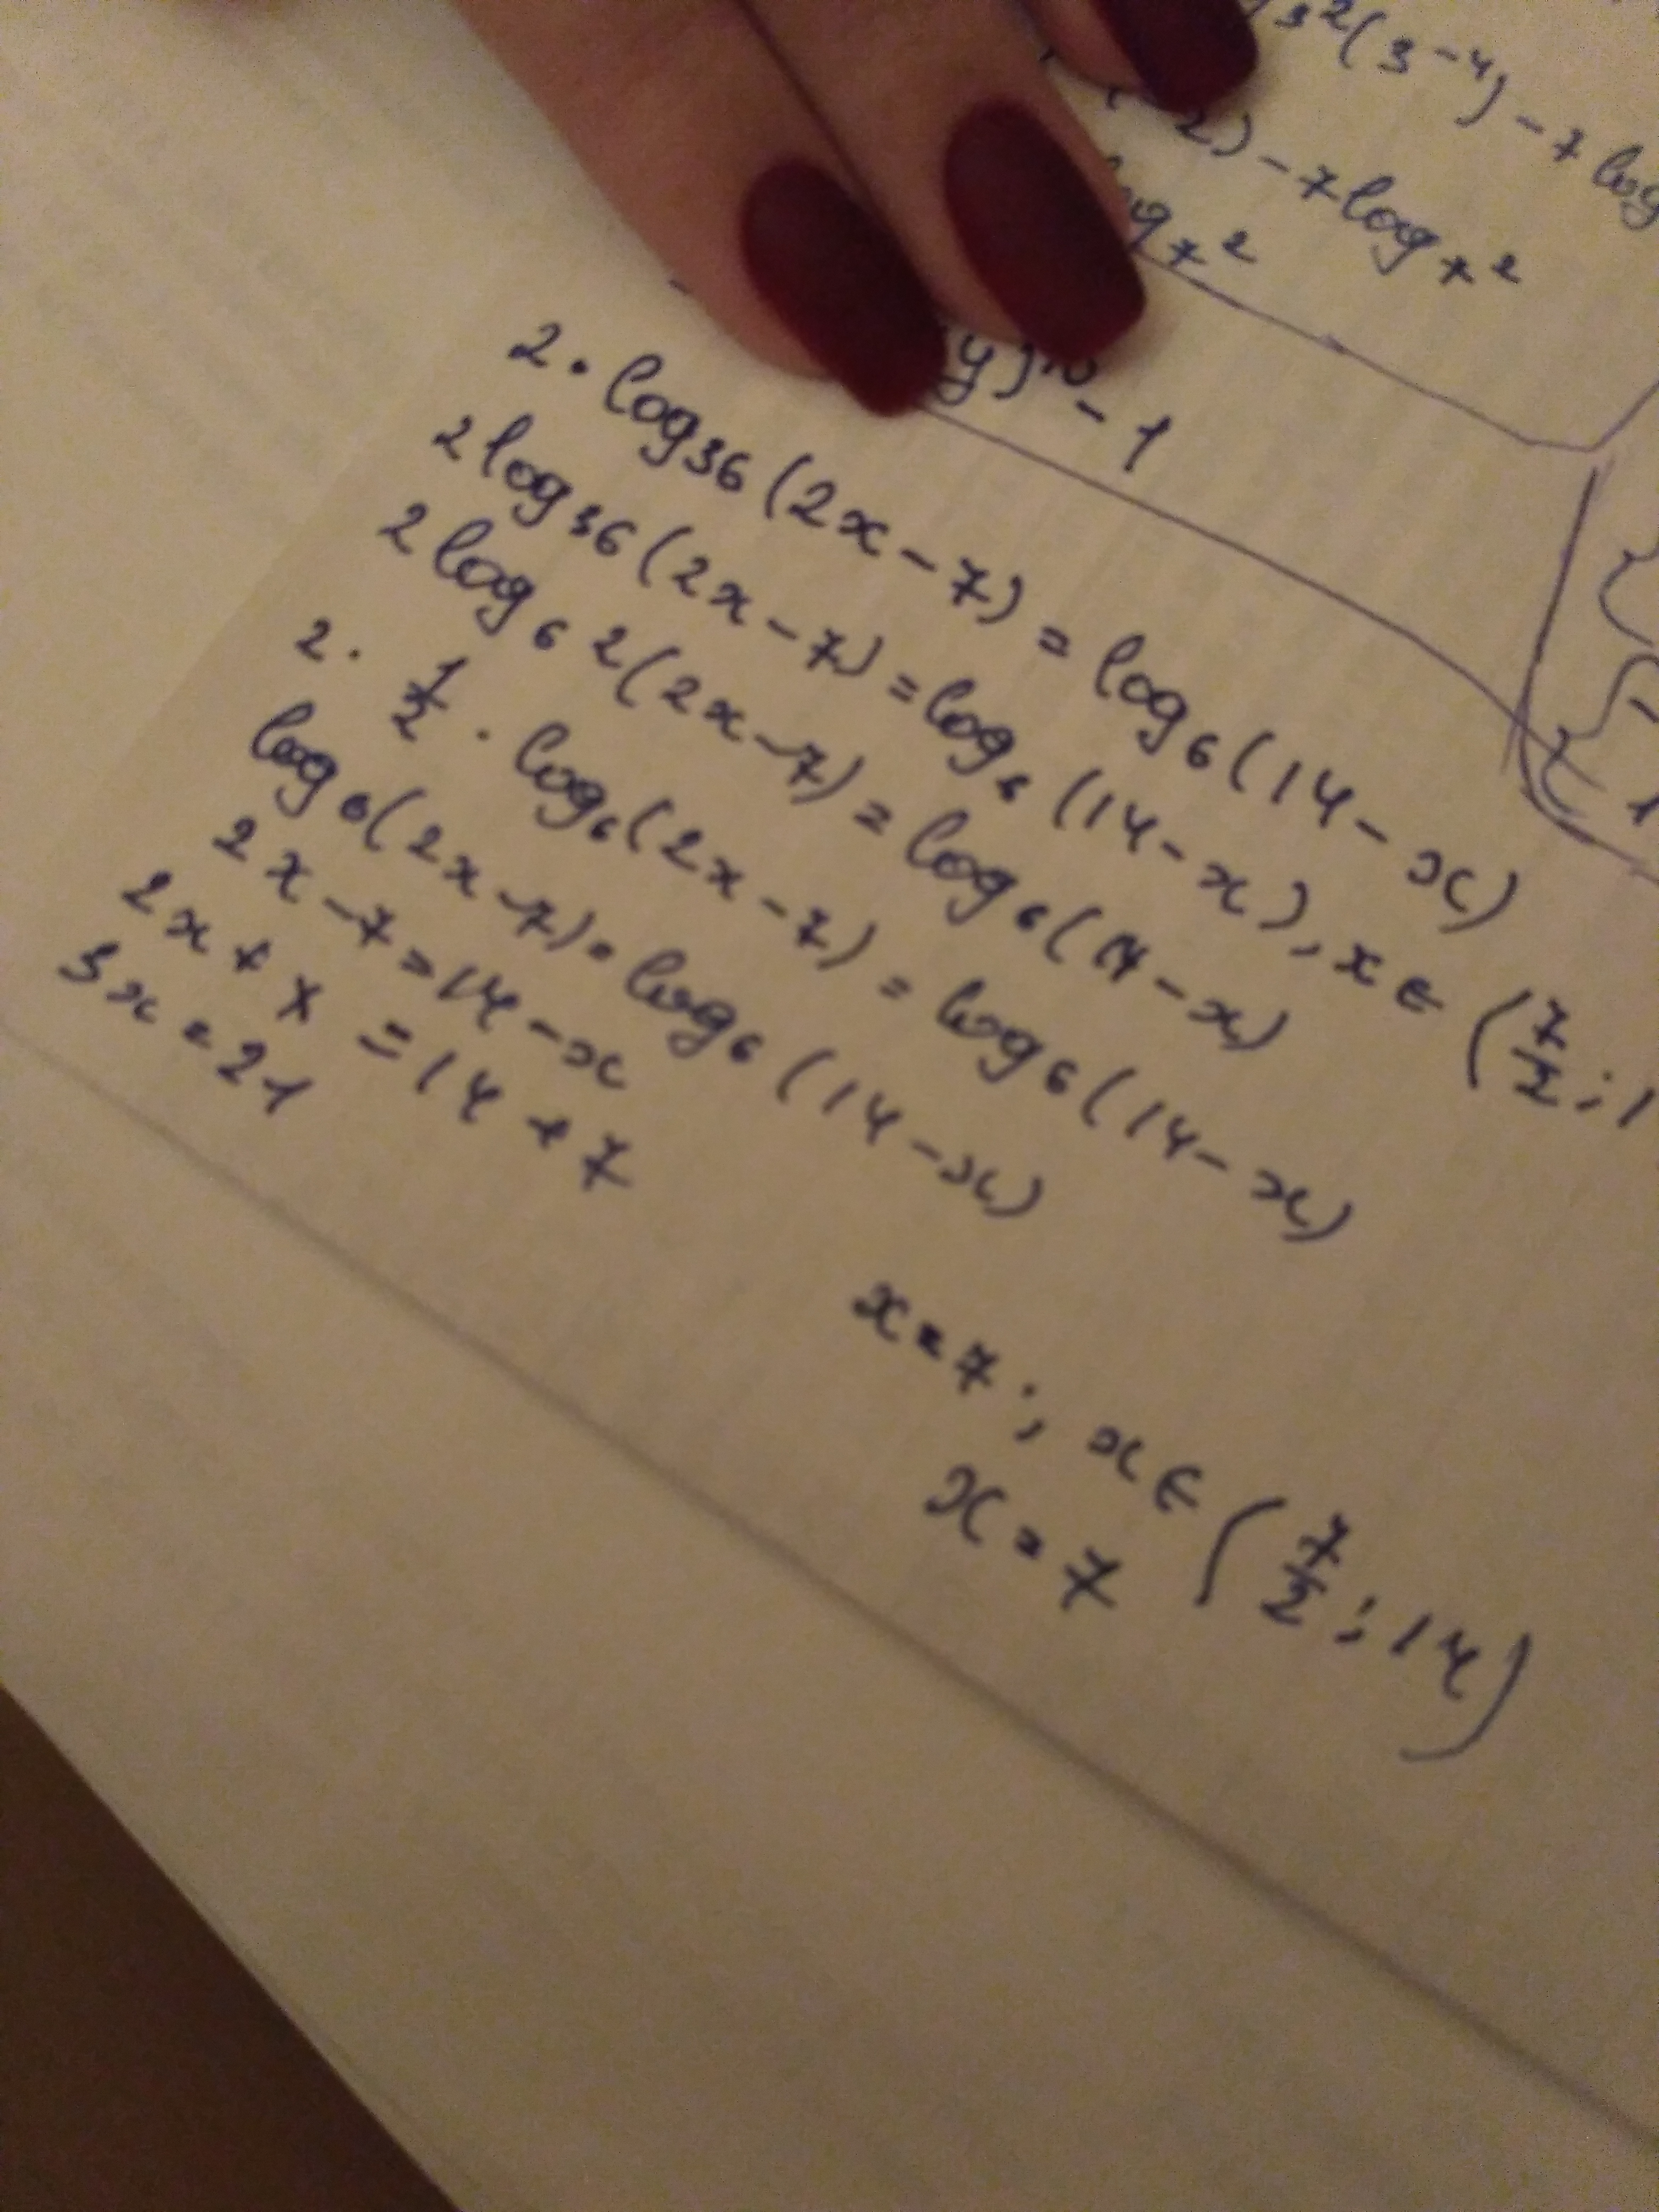 3²(3⁻⁴) - 7 log
2) - 7 log₇ 2
log₇ 2
y)¹⁰ - 1
2 · log₃₆ (2x - 7) = log₆ (14 - x)
2 log₃₆ (2x - 7) = log₆ (14 - x), x ∈ (7/2 ; 1
2 log₆ 2 (2x - 7) = log₆ (14 - x)
2 · 1/2 · log₆ (2x - 7) = log₆ (14 - x)
log₆ (2x - 7) = log₆ (14 - x)
2x - 7 = 14 - x
2x + x = 14 + 7
3x = 21
x = 7 ; x ∈ (7/2 ; 14)
x = 7